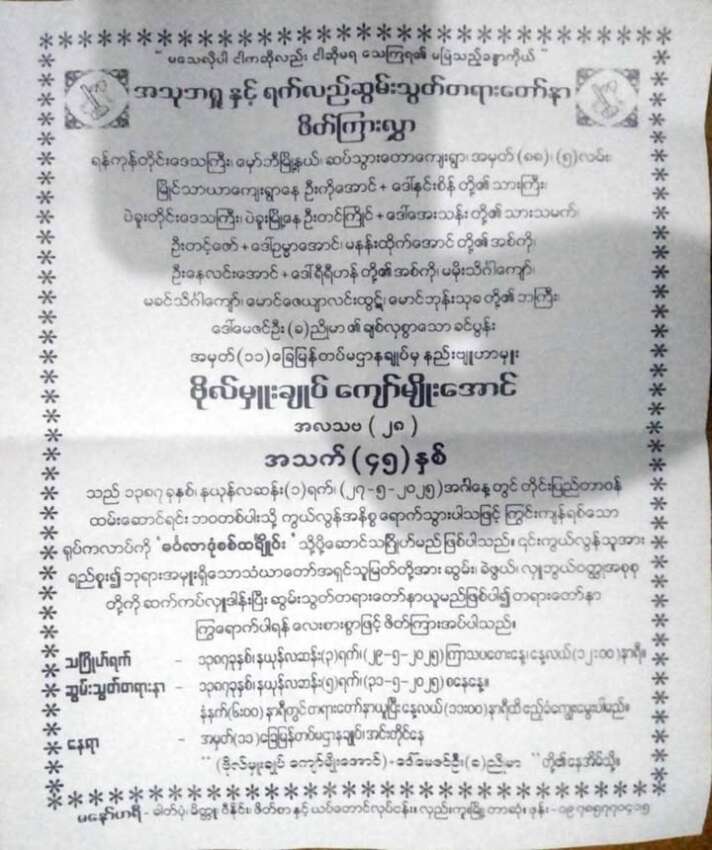 “ မသေလိုပါ ငါကဆိုလည်း ငါဆိုမရ သေကြရ၏ မမြဲသည့်ခန္ဓာကိုယ် ”
အသုဘရှု နှင့် ရက်လည်ဆွမ်းသွတ်တရားတော်နာ
ဖိတ်ကြားလွှာ
ရန်ကုန်တိုင်းဒေသကြီး၊ မှော်ဘီမြို့နယ်၊ ဆပ်သွားတောကျေးရွာ၊ အမှတ်(၈၈)၊ (၅)လမ်း၊
မြိုင်သာယာကျေးရွာနေ ဦးကိုအောင် + ဒေါ်နှင်းစိန် တို့၏ သားကြီး၊
ပဲခူးတိုင်းဒေသကြီး၊ ပဲခူးမြို့နေ ဦးတင်ကြိုင် + ဒေါ်အေးသန်း တို့၏ သားသမက်၊
ဦးတင့်ဇော် + ဒေါ်ဥမ္မာအောင်၊ မနန်းထိုက်အောင် တို့၏ အစ်ကို၊
ဦးနေလင်းအောင် + ဒေါ်ရီရီဟန် တို့၏ အစ်ကို၊ မမိုးသိင်္ဂါကျော်၊
မခင်သိင်္ဂါကျော်၊ မောင်ဇေယျာလင်းထွဋ်၊ မောင်ဘုန်းသုခ တို့၏ ဘကြီး၊
ဒေါ်မေဇင်ဦး (ခ) ညိုမာ ၏ ချစ်လှစွာသော ခင်ပွန်း
အမှတ်(၁၁)ခြေမြန်တပ်မဌာနချုပ်မှ နည်းဗျူဟာမှူး
ဗိုလ်မှူးချုပ် ကျော်မျိုးအောင်
အလသဗ ( ၂၈ )
အသက် (၄၅) နှစ်
သည် ၁၃၈၇ ခုနှစ်၊ နယုန်လဆန်း(၁)ရက်၊ (၂၇-၅-၂၀၂၅) အင်္ဂါနေ့ တွင် တိုင်းပြည်တာဝန်
ထမ်းဆောင်ရင်း ဘဝတစ်ပါးသို့ ကွယ်လွန်အနိစ္စ ရောက်သွားပါသဖြင့် ကြွင်းကျန်ရစ်သော
ရုပ်ကလာပ်ကို သို့ပို့ဆောင်သင်္ဂြိုဟ်မည် ဖြစ်ပါသည်။ ၎င်းကွယ်လွန်သူအား
ရည်စူး၍ ဘုရားအမှူးရှိသောသံဃာတော်အရှင်သူမြတ်တို့အား ဆွမ်း၊ ခဲဖွယ်၊ လှူဘွယ်ဝတ္ထုအစုစု
တို့ကို ဆက်ကပ်လှူဒါန်းပြီး ဆွမ်းသွတ်တရားတော်နာယူမည်ဖြစ်ပါ၍ တရားတော်နာ
ကြွရောက်ပါရန် လေးစားစွာဖြင့် ဖိတ်ကြားအပ်ပါသည်။
သင်္ဂြိုဟ်ရက် - ၁၃၈၇ခုနှစ်၊ နယုန်လဆန်း(၃)ရက်၊ (၂၉-၅-၂၀၂၅) ကြာသပတေးနေ့၊ နေ့လယ်(၁၂:၀၀)နာရီ။
ဆွမ်းသွတ်တရားနာ - ၁၃၈၇ခုနှစ်၊ နယုန်လဆန်း(၅)ရက်၊ (၃၁-၅-၂၀၂၅) စနေနေ့။
နံနက်(၆:၀၀) နာရီတွင်တရားတော်နာယူပြီး နေ့လယ်(၁၁:၀၀)နာရီထိ ဧည့်ခံကျွေးမွေးပါမည်။
နေရာ - အမှတ်(၁၁)ခြေမြန်တပ်မဌာနချုပ်၊ အင်းတိုင်နေ
“ (ဗိုလ်မှူးချုပ် ကျော်မျိုးအောင်)+ဒေါ်မေဇင်ဦး(ခ)ညိုမာ ” တို့၏နေအိမ်သို့။
မနော်ဟရီ - ဓါတ်ပုံ၊ မိတ္တူ၊ ဗီနိုင်း၊ ဖိတ်စာ နှင့် ယပ်တောင်လုပ်ငန်း။ လှည်းကူးမြို့ ဖုန်း - ၀၉ ၇၈၅၇၇၀၄၁၅